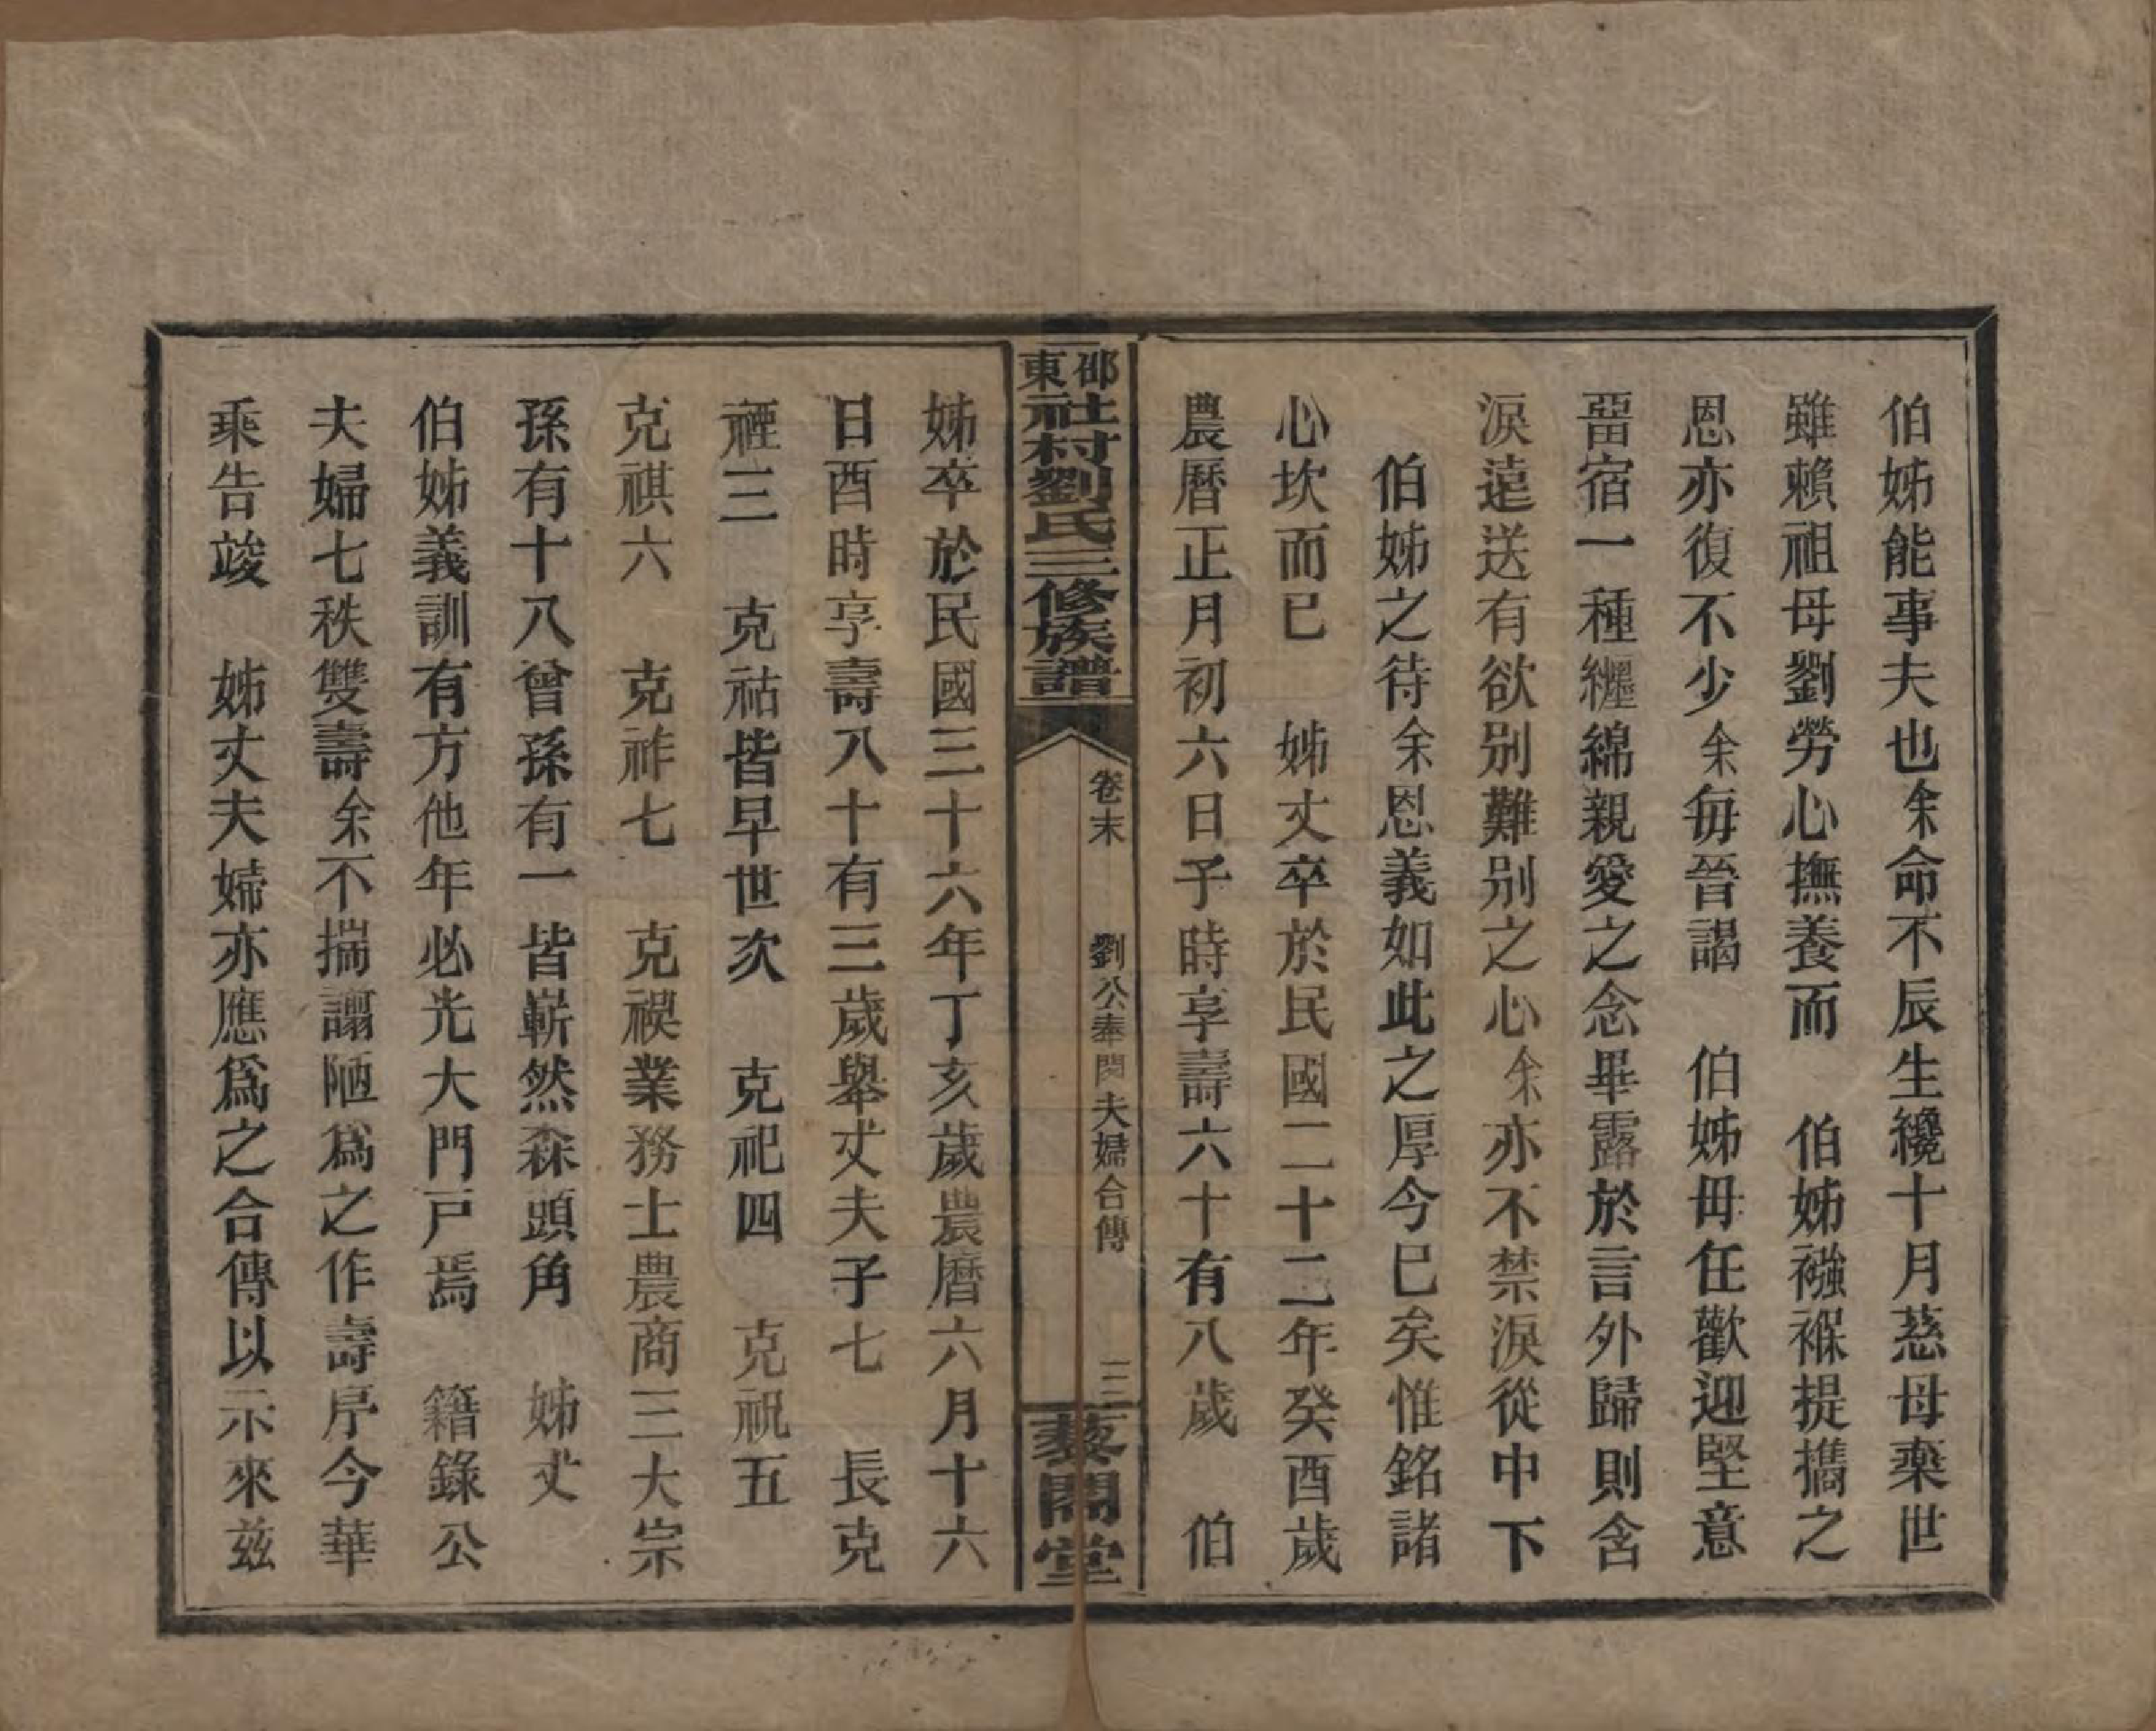 伯姊能事夫也余命不辰生纔十月慈母棄世
雖賴祖母劉勞心撫養而　伯姊襁褓提攜之
恩亦復不少余每晉謁　伯姊毋任歡迎堅意
畱宿一種纏綿親愛之念畢露於言外歸則含
淚遠送有欲別難別之心余亦不禁淚從中下
伯姊之待余恩義如此之厚今已矣惟銘諸
心坎而已　姊丈卒於民國二十二年癸酉歲
農曆正月初六日子時享壽六十有八歲　伯
邵東社村劉氏三修族譜
卷末
劉公奉閔夫婦合傳
三
藜閣堂
姊卒於民國三十六年丁亥歲農曆六月十六
日酉時享壽八十有三歲舉丈夫子七　長克
禋三　克祜皆早世次　克祀四　克祝五
克祺六　克祚七　克禩業務士農商三大宗
孫有十八曾孫有一皆嶄然森頭角　姊丈
伯姊義訓有方他年必光大門戸焉　籍錄公
夫婦七秩雙壽余不揣謭陋爲之作壽序今華
乘告竣　姊丈夫婦亦應爲之合傳以示來兹